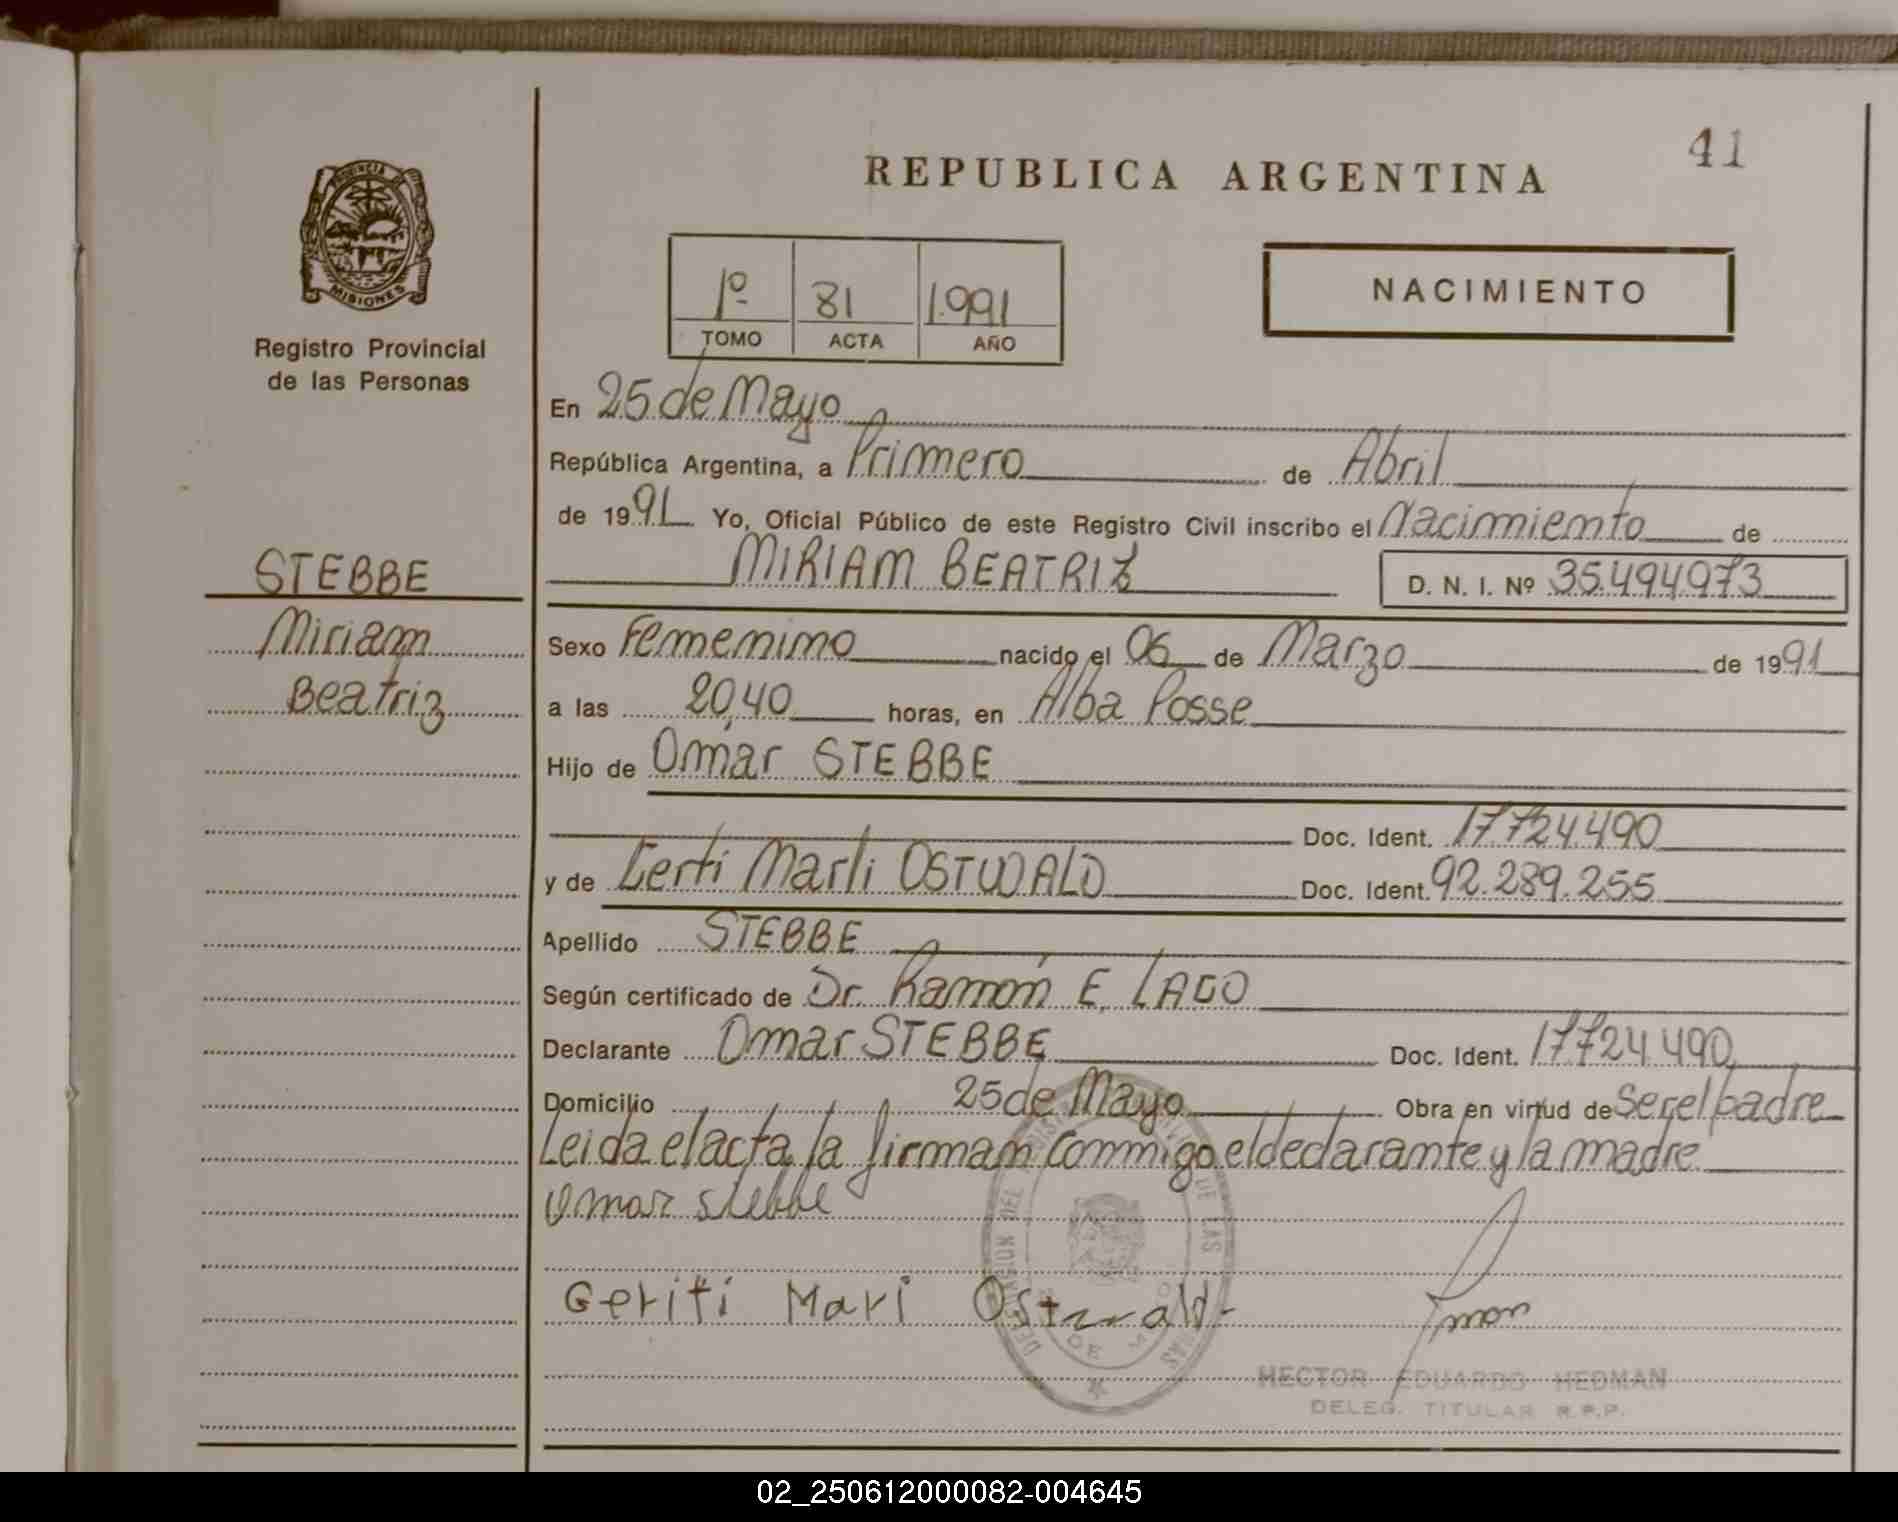 41
REPUBLICA ARGENTINA
PROVINCIA DE
MISIONES
Registro Provincial
de las Personas
1º 81 1.991
TOMO ACTA AÑO
NACIMIENTO
En 25 de Mayo
República Argentina, a Primero de Abril
de 1991 Yo, Oficial Público de este Registro Civil inscribo el Nacimiento de
MIRIAM BEATRIZ D. N. I. Nº 35.494.973
STEBBE
Miriam
Beatriz
Sexo Femenino nacido el 06 de Marzo de 1991
a las 20,40 horas, en Alba Posse
Hijo de Omar STEBBE
Doc. Ident. 17.724.490
y de Marli OSTWALD Doc. Ident. 92.289.255
Apellido STEBBE
Según certificado de Dr. Ramón E. LAGO
Declarante Omar STEBBE Doc. Ident. 17.724.490
Domicilio 25 de Mayo Obra en virtud de ser el padre
Leida el acta, la firman conmigo el declarante y la madre
Omar stebbe
Geriti Mari Ostwald
HECTOR EDUARDO HEDMAN
DELEG. TITULAR R.P.P.
02_250612000082-004645